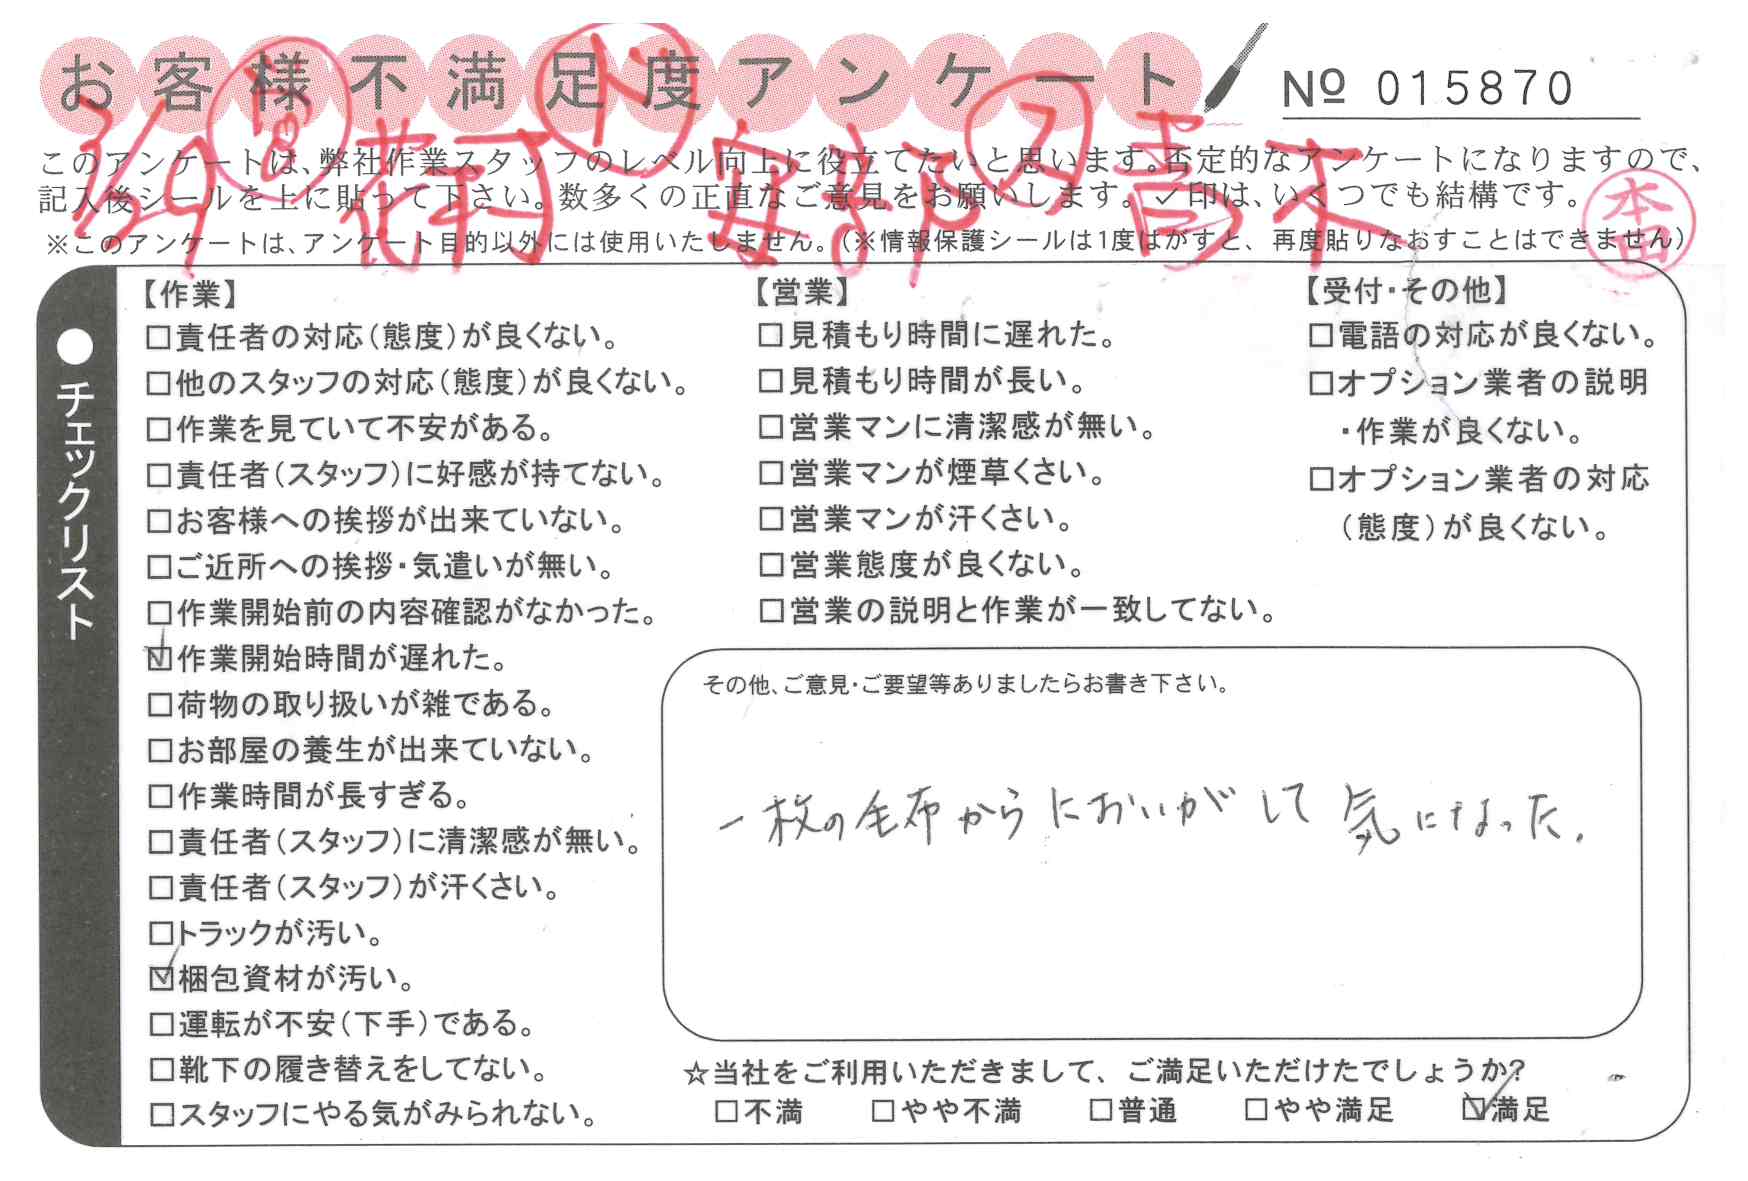 お客様不満足度アンケート
№ 015870
このアンケートは、弊社作業スタッフのレベル向上に役立てたいと思います。否定的なアンケートになりますので、
記入後シールを上に貼って下さい。数多くの正直なご意見をお願いします。✓印は、いくつでも結構です。
※このアンケートは、アンケート目的以外には使用いたしません。(※情報保護シールは1度はがすと、再度貼りなおすことはできません)
花村
ス 青木
本田
●チェックリスト
【作業】
□責任者の対応(態度)が良くない。
□他のスタッフの対応(態度)が良くない。
□作業を見ていて不安がある。
□責任者(スタッフ)に好感が持てない。
□お客様への挨拶が出来ていない。
□ご近所への挨拶・気遣いが無い。
□作業開始前の内容確認がなかった。
☑作業開始時間が遅れた。
□荷物の取り扱いが雑である。
□お部屋の養生が出来ていない。
□作業時間が長すぎる。
□責任者(スタッフ)に清潔感が無い。
□責任者(スタッフ)が汗くさい。
□トラックが汚い。
☑梱包資材が汚い。
□運転が不安(下手)である。
□靴下の履き替えをしてない。
□スタッフにやる気がみられない。
【営業】
□見積もり時間に遅れた。
□見積もり時間が長い。
□営業マンに清潔感が無い。
□営業マンが煙草くさい。
□営業マンが汗くさい。
□営業態度が良くない。
□営業の説明と作業が一致してない。
【受付・その他】
□電話の対応が良くない。
□オプション業者の説明
・作業が良くない。
□オプション業者の対応
(態度)が良くない。
その他、ご意見・ご要望等ありましたらお書き下さい。
一枚の毛布からにおいがして気になった.
☆当社をご利用いただきまして、ご満足いただけたでしょうか?
□不満 □やや不満 □普通 □やや満足 ☑満足